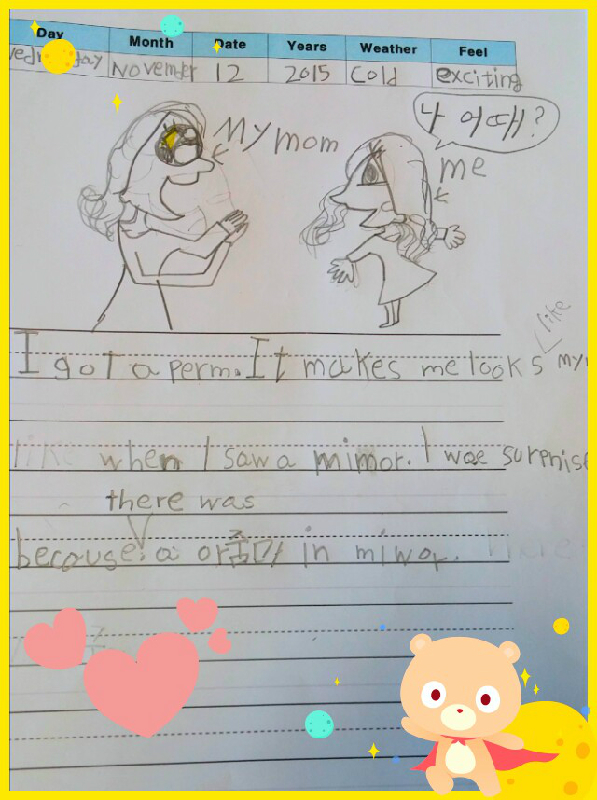 Day Month Date Years Weather Feel
November 12 2015 Cold exciting
나 어때?
My mom
me
like
I got a perm. It makes me looks my
like when I saw a mirror. I was surprise
there was
because a 아줌마 in mirror.